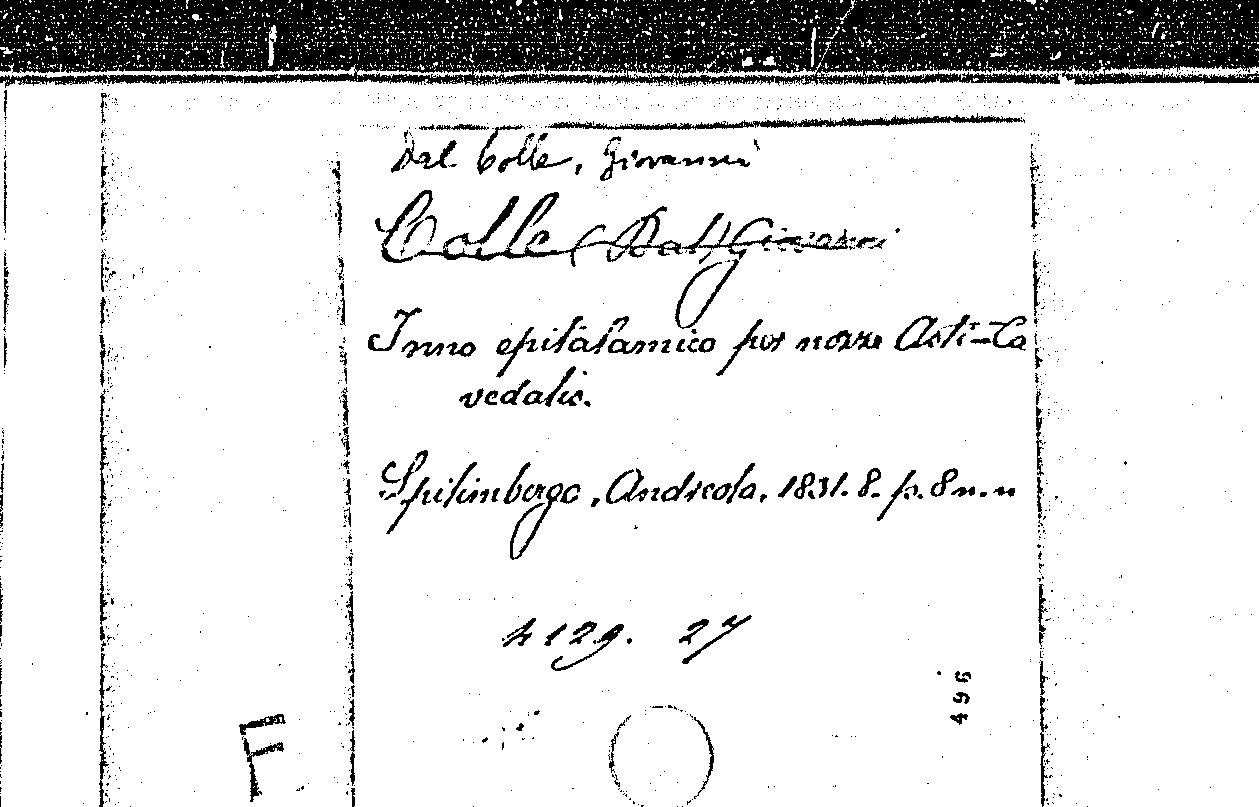 Dal Colle, Giovanni
Colle (Dal) Giovanni
Inno epitalamico per nozze Asti-Ca
vedalis.
Spilimbergo, Andreola, 1831. 8. p. 8 n. n
4129. 27
496
F